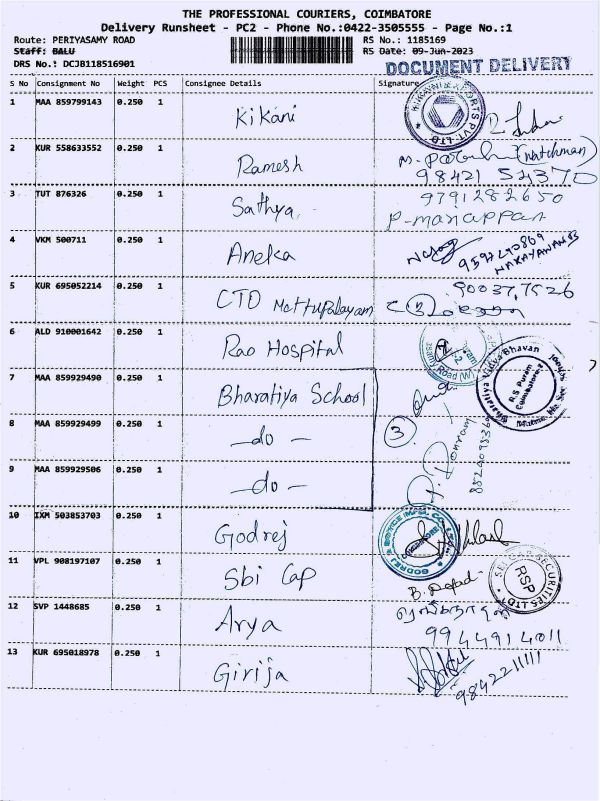 THE PROFESSIONAL COURIERS, COIMBATORE
Delivery Runsheet - PC2 - Phone No.:0422-3505555 - Page No.:1
Route: PERIYASAMY ROAD RS No.: 1185169
Staff: BALU RS Date: 09-Jun-2023
DRS No.: DCJB118516901 DOCUMENT DELIVERY
S No Consignment No Weight PCS Consignee Details Signature
1 MAA 859799143 0.250 1 Kikani
2 KUR 558633552 0.250 1 Ramesh (Watchman)
98421 52370
3 TUT 876326 0.250 1 Sathya 9791282650
P-mariappan
4 VKM 500711 0.250 1 Aneka
NARAYANAN
5 KUR 695052214 0.250 1 CTO Mettupalayam
6 ALD 910001642 0.250 1 Rao Hospital
7 MAA 859929490 0.250 1 Bharatiya School Bharatiya Vidya Bhavan
R.S Puram
Coimbatore-2
8 MAA 859929499 0.250 1 -do- 3
9 MAA 859929506 0.250 1 -do-
10 IXM 503853703 0.250 1 Godrej
11 VPL 908197107 0.250 1 Sbi Cap RSP
12 SVP 1448685 0.250 1 Arya
9944914011
13 KUR 695018978 0.250 1 Girija
9842211111